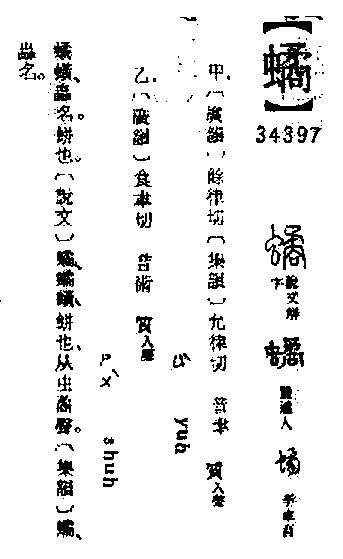 【蟠】
34397
說文解字
甲、〔廣韻〕餘律切〔集韻〕允律切 音聿 質入聲
yuh
乙、〔廣韻〕食聿切 音術 質入聲
ㄕㄨˋ
shuh
蟠蟥、蟲名。蛢也。〔說文〕蟠、蟠蟥、蛢也、从虫矞聲。〔集韻〕蟠、
蟲名。